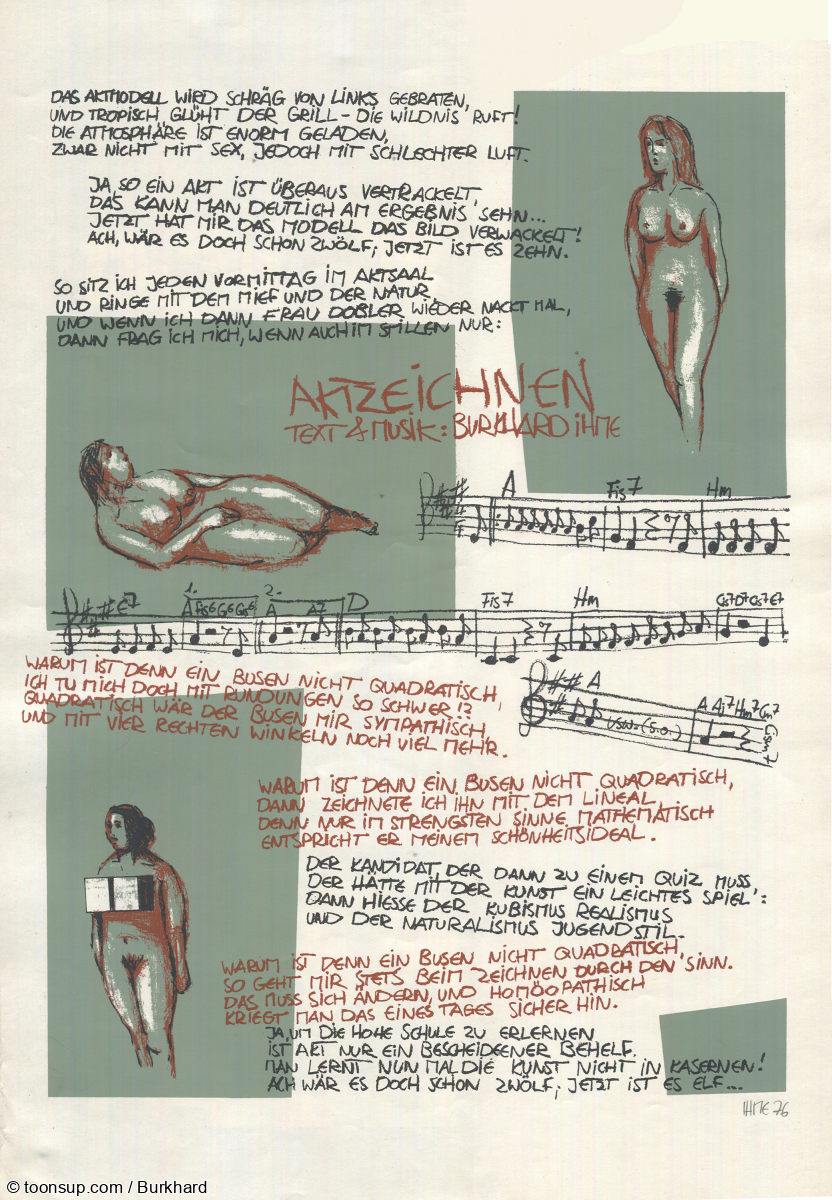 DAS AKTMODELL WIRD SCHRÄG VON LINKS GEBRATEN,
UND TROPISCH GLÜHT DER GRILL – DIE WILDNIS RUFT!
DIE ATMOSPHÄRE IST ENORM GELADEN,
ZWAR NICHT MIT SEX, JEDOCH MIT SCHLECHTER LUFT.
JA, SO EIN AKT IST ÜBERAUS VERTRACKELT,
DAS KANN MAN DEUTLICH AM ERGEBNIS SEHN...
JETZT HAT MIR DAS MODELL DAS BILD VERWACKELT!
ACH, WÄR ES DOCH SCHON ZWÖLF; JETZT IST ES ZEHN.
SO SITZ ICH JEDEN VORMITTAG IM AKTSAAL
UND RINGE MIT DEM MIEF UND DER NATUR,
UND WENN ICH DANN FRAU DOBLER WIEDER NACKT MAL,
DANN FRAG ICH MICH, WENN AUCH IM STILLEN NUR:
AKTZEICHNEN
TEXT & MUSIK: BURKHARD IHME
A Fis7 Hm
E7 1. A Fis6 G6 Gis6 2. A A7 D Fis7 Hm Cis7 D7 Cis7 E7
WARUM IST DENN EIN BUSEN NICHT QUADRATISCH,
ICH TU MICH DOCH MIT RUNDUNGEN SO SCHWER!?
QUADRATISCH WÄR DER BUSEN MIR SYMPATHISCH,
UND MIT VIER RECHTEN WINKELN NOCH VIEL MEHR.
A USW. (S.O.) A Aj7 Hm7 Cm7 Cism7
WARUM IST DENN EIN BUSEN NICHT QUADRATISCH,
DANN ZEICHNETE ICH IHN MIT DEM LINEAL,
DENN NUR IM STRENGSTEN SINNE MATHEMATISCH
ENTSPRICHT ER MEINEM SCHÖNHEITSIDEAL.
DER KANDIDAT, DER DANN ZU EINEM QUIZ MUSS,
DER HÄTTE MIT DER KUNST EIN LEICHTES SPIEL:
DANN HIESSE DER KUBISMUS REALISMUS
UND DER NATURALISMUS JUGENDSTIL.
WARUM IST DENN EIN BUSEN NICHT QUADRATISCH,
SO GEHT MIR STETS BEIM ZEICHNEN DURCH DEN SINN.
DAS MUSS SICH ÄNDERN, UND HOMÖOPATHISCH
KRIEGT MAN DAS EINES TAGES SICHER HIN.
JA, UM DIE HOHE SCHULE ZU ERLERNEN
IST AKT NUR EIN BESCHEIDEENER BEHELF.
MAN LERNT NUN MAL DIE KUNST NICHT IN KASERNEN!
ACH WÄR ES DOCH SCHON ZWÖLF; JETZT IST ES ELF...
IHME 76
© toonsup.com / Burkhard